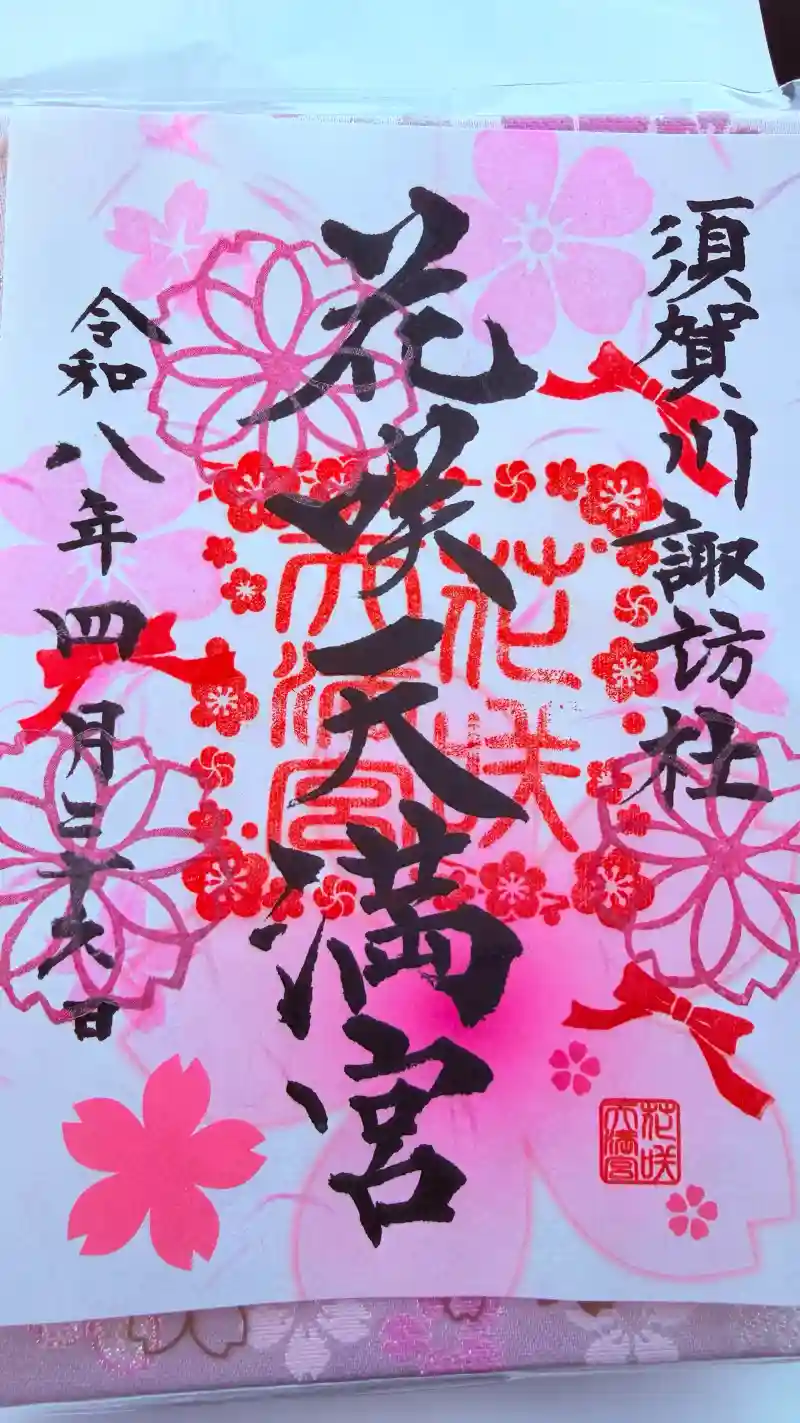 須賀川諏訪社
花咲天満宮
花咲
天満宮
令和八年四月二十六日
花咲
天満宮